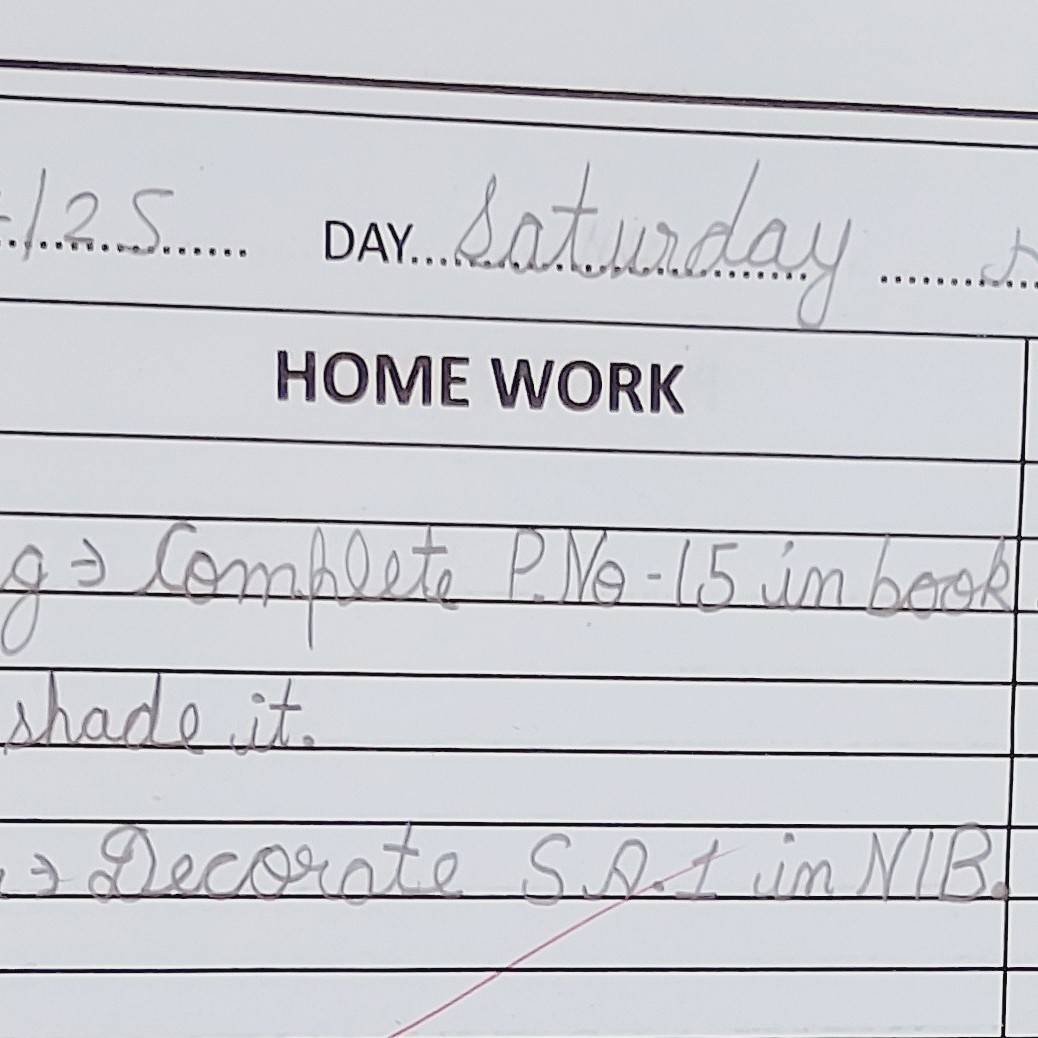 /25 DAY Saturday
HOME WORK
g → Complete P.No-15 in book
shade it.
→ Decorate S.A.1 in N/B.